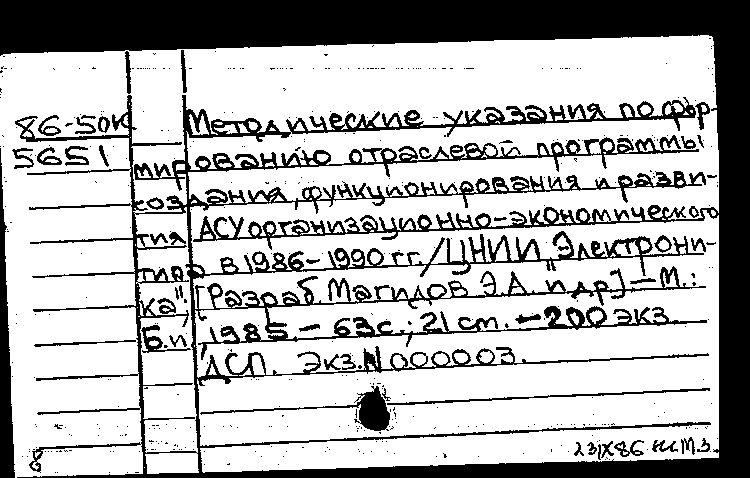 86-50К Методические указания по фор-
5651 мированию отраслевой программы
создания, функционирования и разви-
тия АСУ организационно-экономического
типа в 1986-1990 гг. / ЦНИИ "Электрони-
ка"; [Разраб Магидов Э.А. и др]. - М.:
Б.и., 1985. - 63 с.; 21 см. - 200 экз.
ДСП. Экз. N 000003.
8